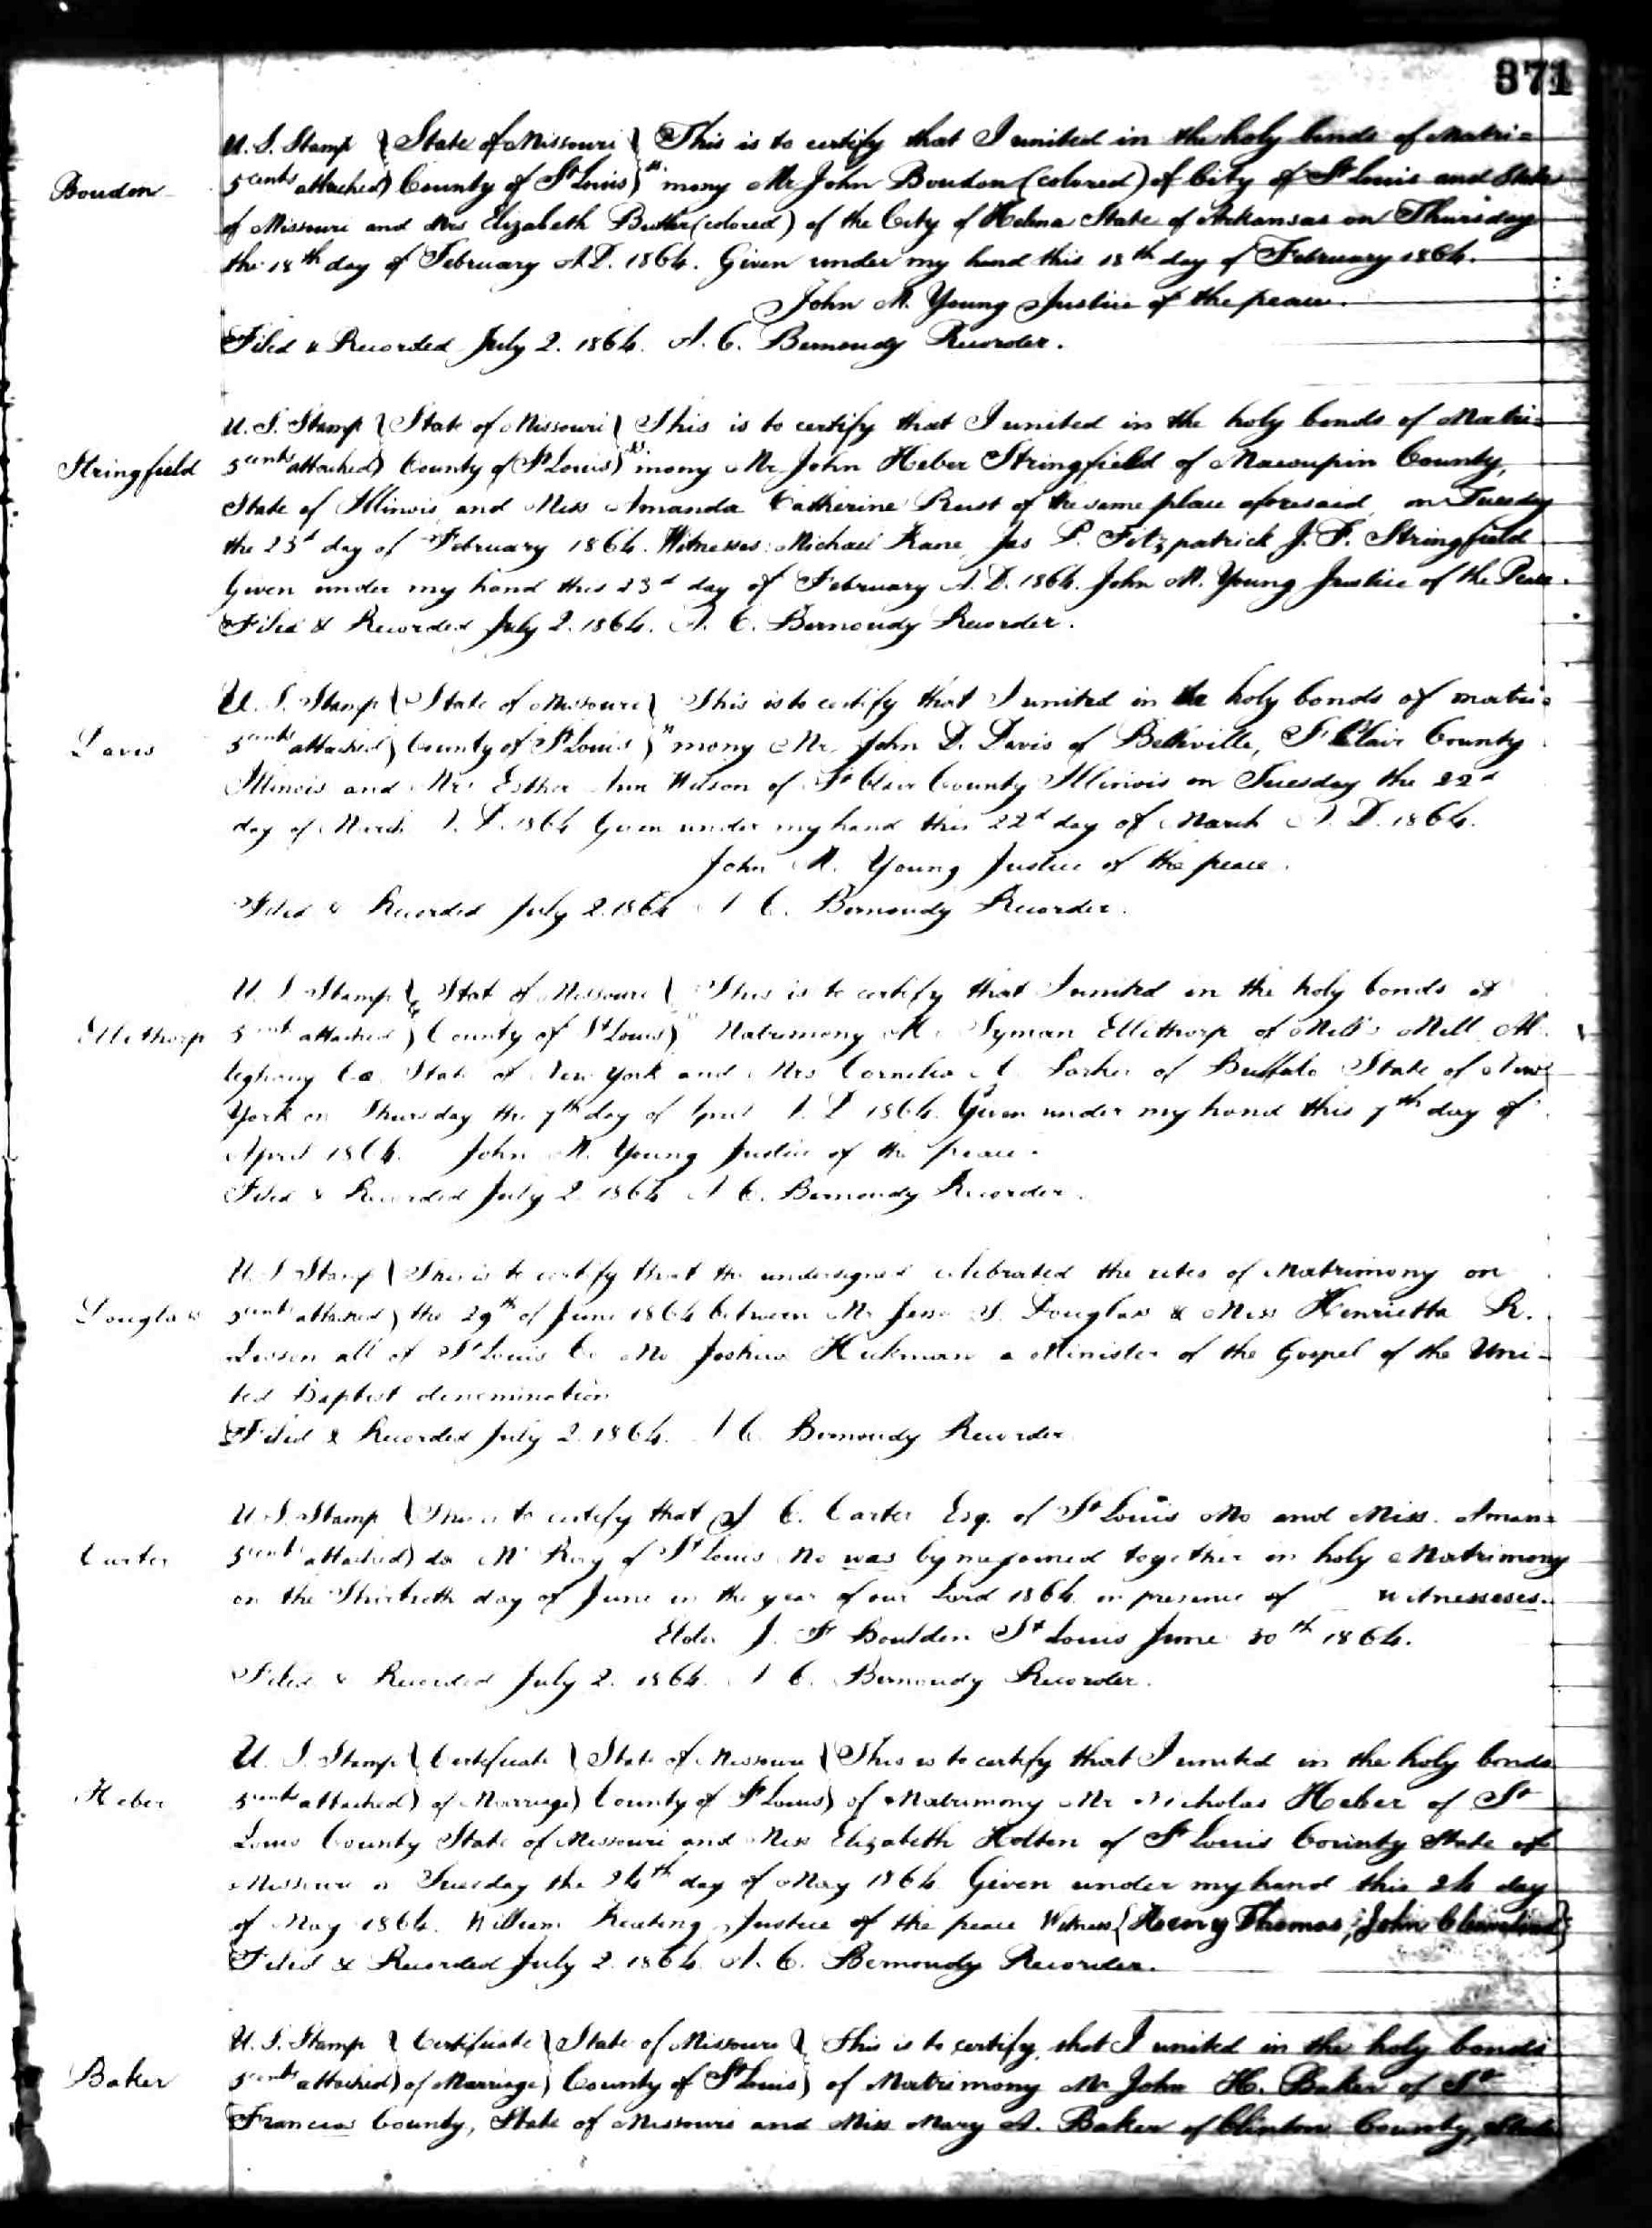 371
U. S. Stamp } State of Missouri } This is to certify that I united in the holy bonds of Matri=
Boudon 5 cents attached) County of St Louis) ss mony Mr John Boudon (colored) of City of St Louis and State
of Missouri and Mrs Elizabeth Butler (colored) of the City of Helena State of Arkansas on Thursday
the 18th day of February A.D. 1864. Given under my hand this 18th day of February 1864.
John M. Young Justice of the peace.
Filed & Recorded July 2. 1864. A. C. Bernoudy Recorder.
U. S. Stamp } State of Missouri } This is to certify that I united in the holy bonds of Matri=
Stringfield 5 cents attached) County of St Louis) ss mony Mr John Heber Stringfield of Macoupin County,
State of Illinois and Miss Amanda Catherine Rust of the same place aforesaid, on Tuesday
the 23d day of February 1864. Witnesses: Michael Kane, Jas P. Fitzpatrick J. F. Stringfield
Given under my hand this 23d day of February A. D. 1864. John M. Young Justice of the Peace.
Filed & Recorded July 2. 1864. A. C. Bernoudy Recorder.
U. S. Stamp } State of Missouri } This is to certify that I united in the holy bonds of matri=
Davis 5 cents attached) County of St Louis) ss mony Mr John D. Davis of Belleville, St Clair County
Illinois and Mrs Esther Ann Wilson of St Clair County Illinois on Tuesday the 22d
day of March A. D. 1864 Given under my hand this 22d day of March A. D. 1864.
John M. Young Justice of the peace.
Filed & Recorded July 2. 1864 A C. Bernoudy Recorder.
U. S. Stamp } State of Missouri } This is to certify that I united in the holy bonds of
Ellethorp 5 cents attached) County of St Louis) Matrimony Mr Lyman Ellithorp of Mills Mill Al=
leghany Co. State of New York and Mrs Cornelia A. Parker of Buffalo State of New
York on Thursday the 7th day of April A. D 1864. Given under my hand this 7th day of
April 1864. John M. Young Justice of the peace.
Filed & Recorded July 2. 1864 A C. Bernoudy Recorder.
U. S. Stamp } This is to certify that the undersigned celebrated the rites of Matrimony on
Douglass 5 cents attached) the 29th of June 1864 between Mr Jesse S. Douglass & Miss Henrietta R.
all of St Louis Co Mo Joshua Hickman a Minister of the Gospel of the Uni=
ted Baptist denomination
Filed & Recorded July 2. 1864. A C. Bernoudy Recorder
U. S. Stamp } This is to certify that J C. Carter Esq. of St Louis Mo and Miss Aman=
Carter 5 cents attached) da Mc Roy of St Louis Mo was by me joined together in holy Matrimony
on the Thirtieth day of June in the year of our Lord 1864 in presence of witnesseses.
Elder J. F Boulden St Louis June 30th 1864.
Filed & Recorded July 2. 1864. A C. Bernoudy Recorder.
U. S. Stamp } Certificate } State of Missouri } This is to certify that I united in the holy bonds
Heber 5 cents attached) of Marriage) County of St Louis) of Matrimony Mr Nicholas Heber of St
Louis County State of Missouri and Miss Elizabeth Holten of St Louis County State of
Missouri on Tuesday the 24th day of May 1864 Given under my hand this 24 day
of May 1864. William Keating Justice of the peace Witness { Henry Thomas, John
Filed & Recorded July 2. 1864. A. C. Bernoudy Recorder.
U. S. Stamp } Certificate } State of Missouri } This is to certify that I united in the holy bonds
Baker 5 cents attached) of Marriage) County of St Louis) of Matrimony Mr John H. Baker of St
Francias County, State of Missouri and Miss Mary A. Baker of Clinton County, State